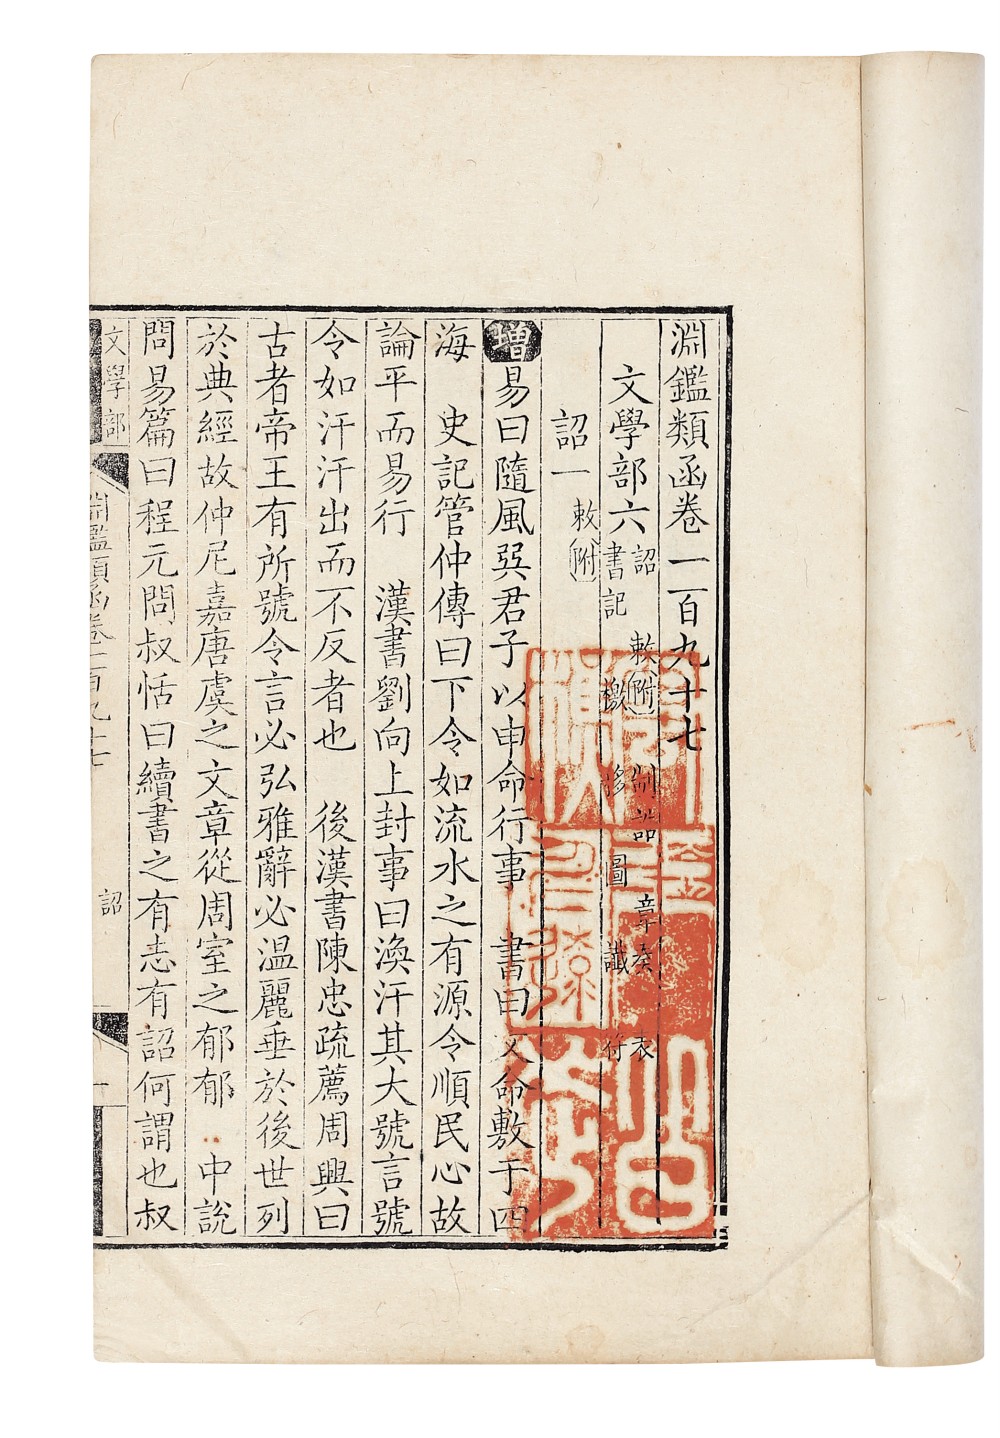 淵鑑類函卷一百九十七
文學部六 詔 敕附 制誥 章奏 表 書記 檄 移 圖 讖 符
詔一 敕附
增易曰隨風巽君子以申命行事 書曰文命敷于四
海 史記管仲傳曰下令如流水之有源令順民心故
論平而易行 漢書劉向上封事曰渙汗其大號言號
令如汗汗出而不反者也 後漢書陳忠疏薦周興曰
古者帝王有所號令言必弘雅辭必温麗垂於後世列
於典經故仲尼嘉唐虞之文章從周室之郁郁 中說
問易篇曰程元問叔恬曰續書之有志有詔何謂也叔
文學部 淵鑑類函卷一百九十七 詔